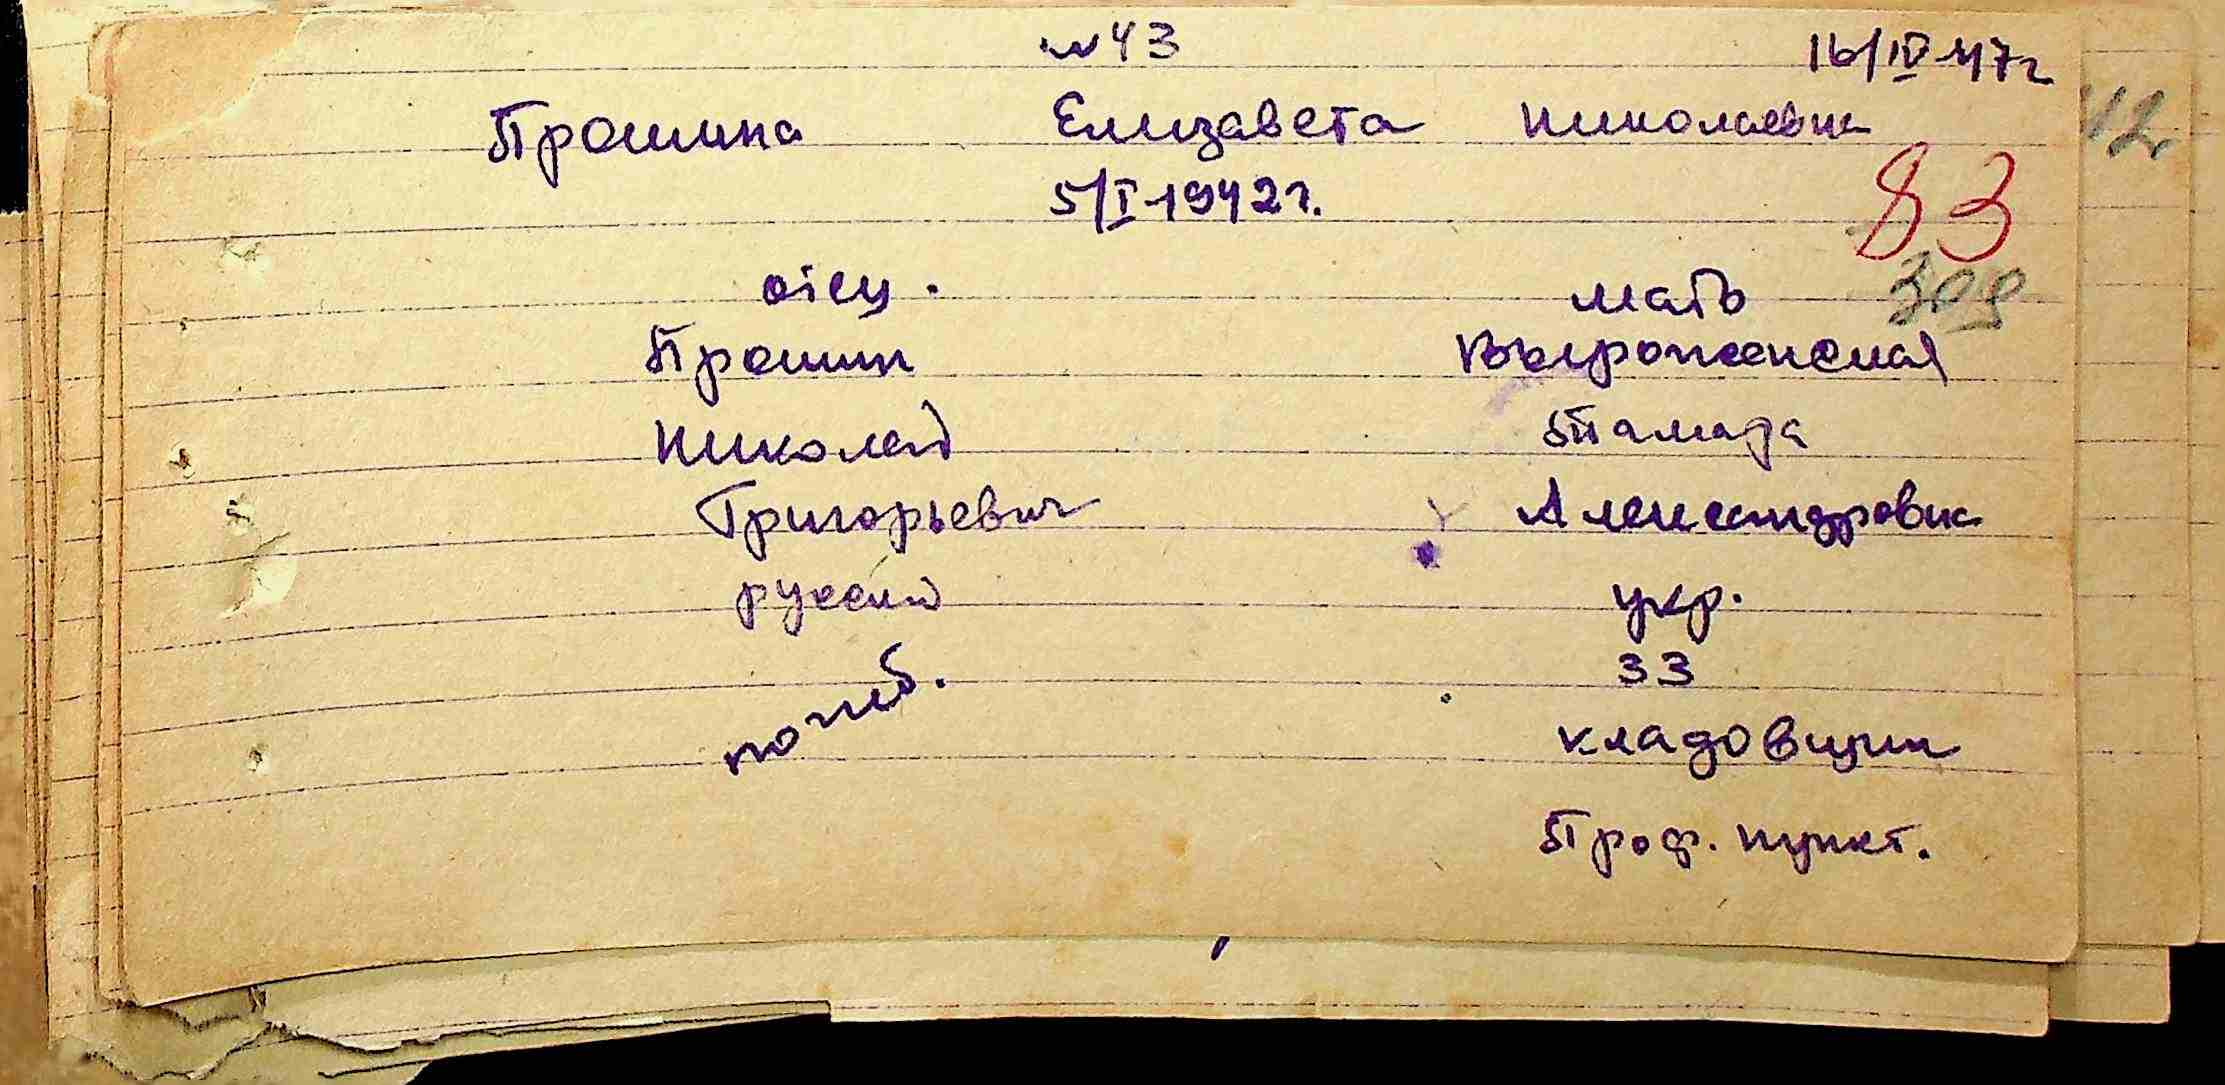 № 43 16/IV-47г
Прошина Елизавета Николаевна
5/I-1942г.
83
отец. мать
309
Прошин
Николай Тамара
Григорьевич Александровна
русский укр.
33
погиб. кладовщик
Проф. пункт.